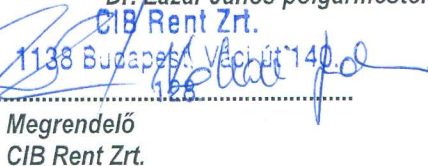 Dr. Lázár János polgármester
CIB Rent Zrt.
1138 Budapest, Váci út 140.
128
Megrendelő
CIB Rent Zrt.